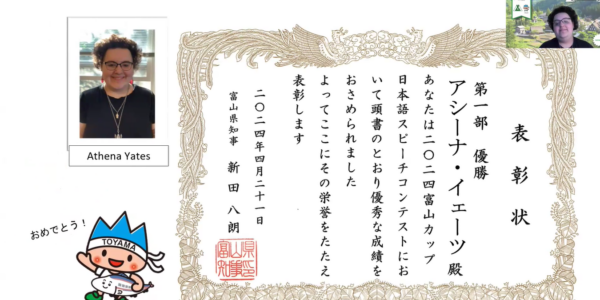 表彰状
第一部 優勝
アシーナ・イェーツ 殿
あなたは二〇二四富山カップ
日本語スピーチコンテストにお
いて頭書のとおり優秀な成績を
おさめられました
よってここにその栄誉をたたえ
表彰します
二〇二四年四月二十一日
富山県知事 新田 八朗
Athena Yates
おめでとう!
TOYAMA